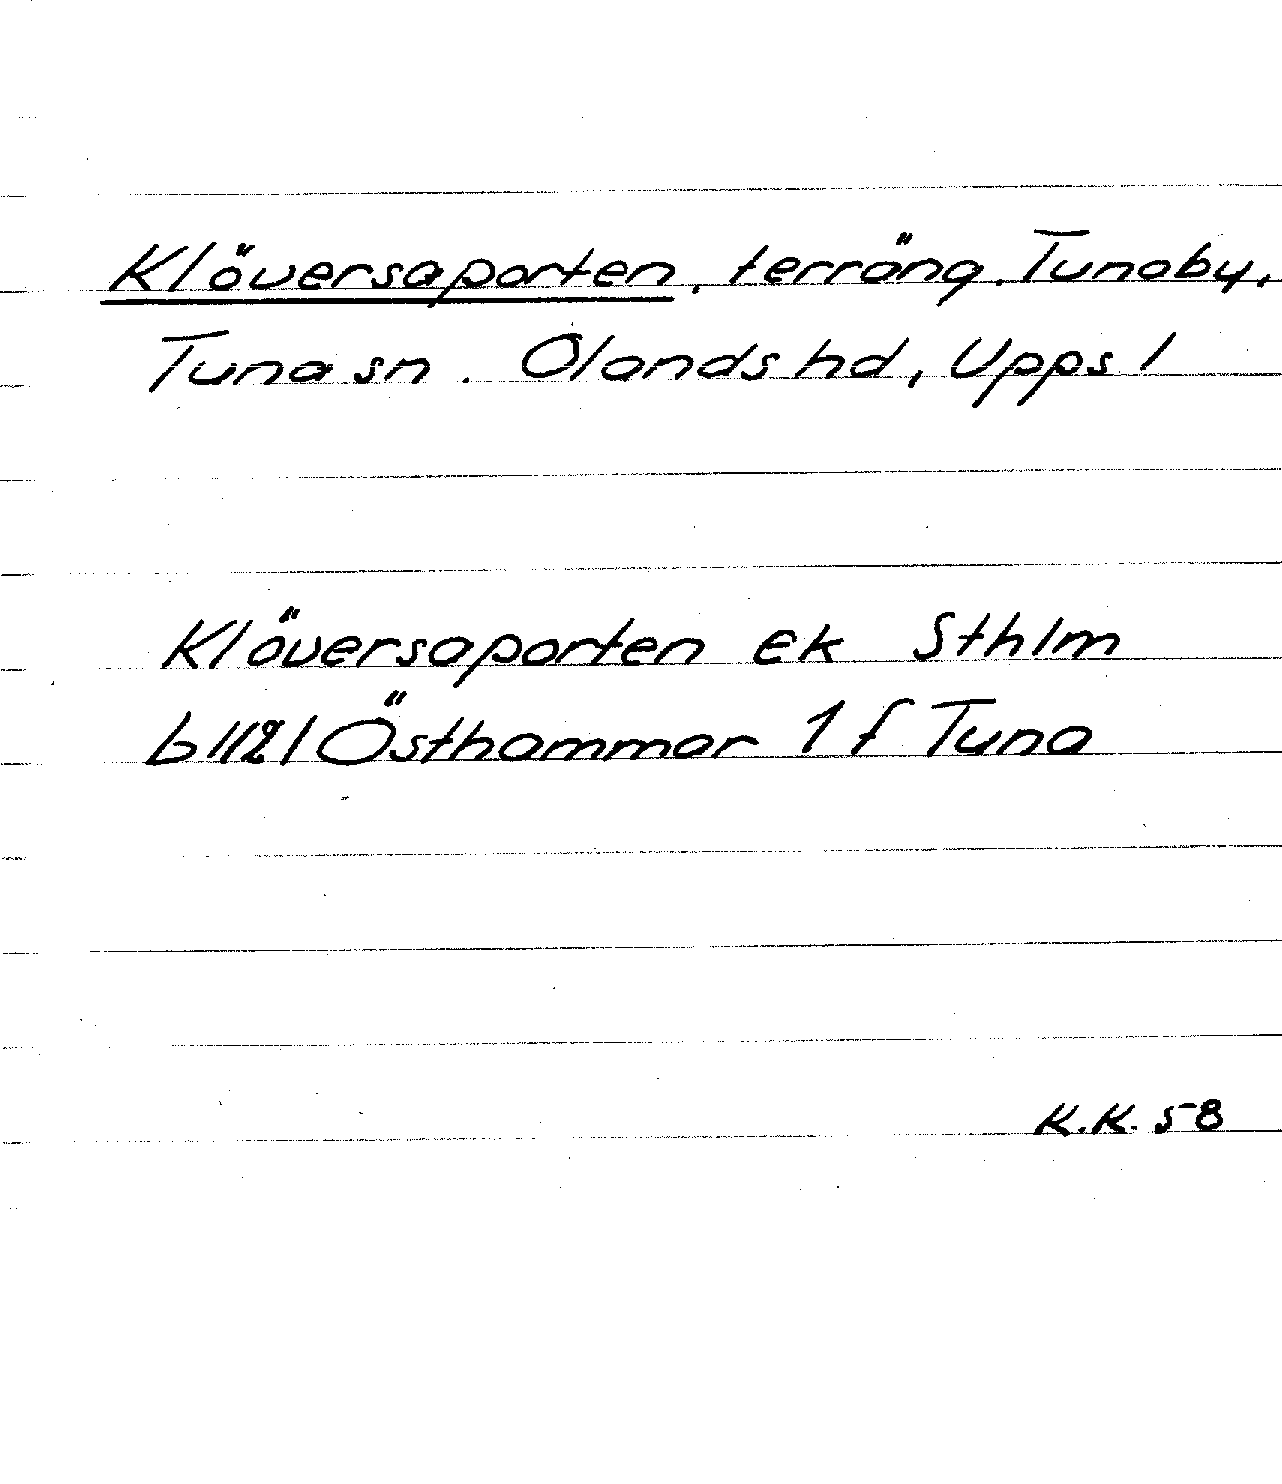 Klöversaporten, terräng. Tunaby,
Tuna sn. Olands hd, Uppsl
Klöversaporten ek Sthlm
bl 121 Östhammar 1 f Tuna
K.K. 58